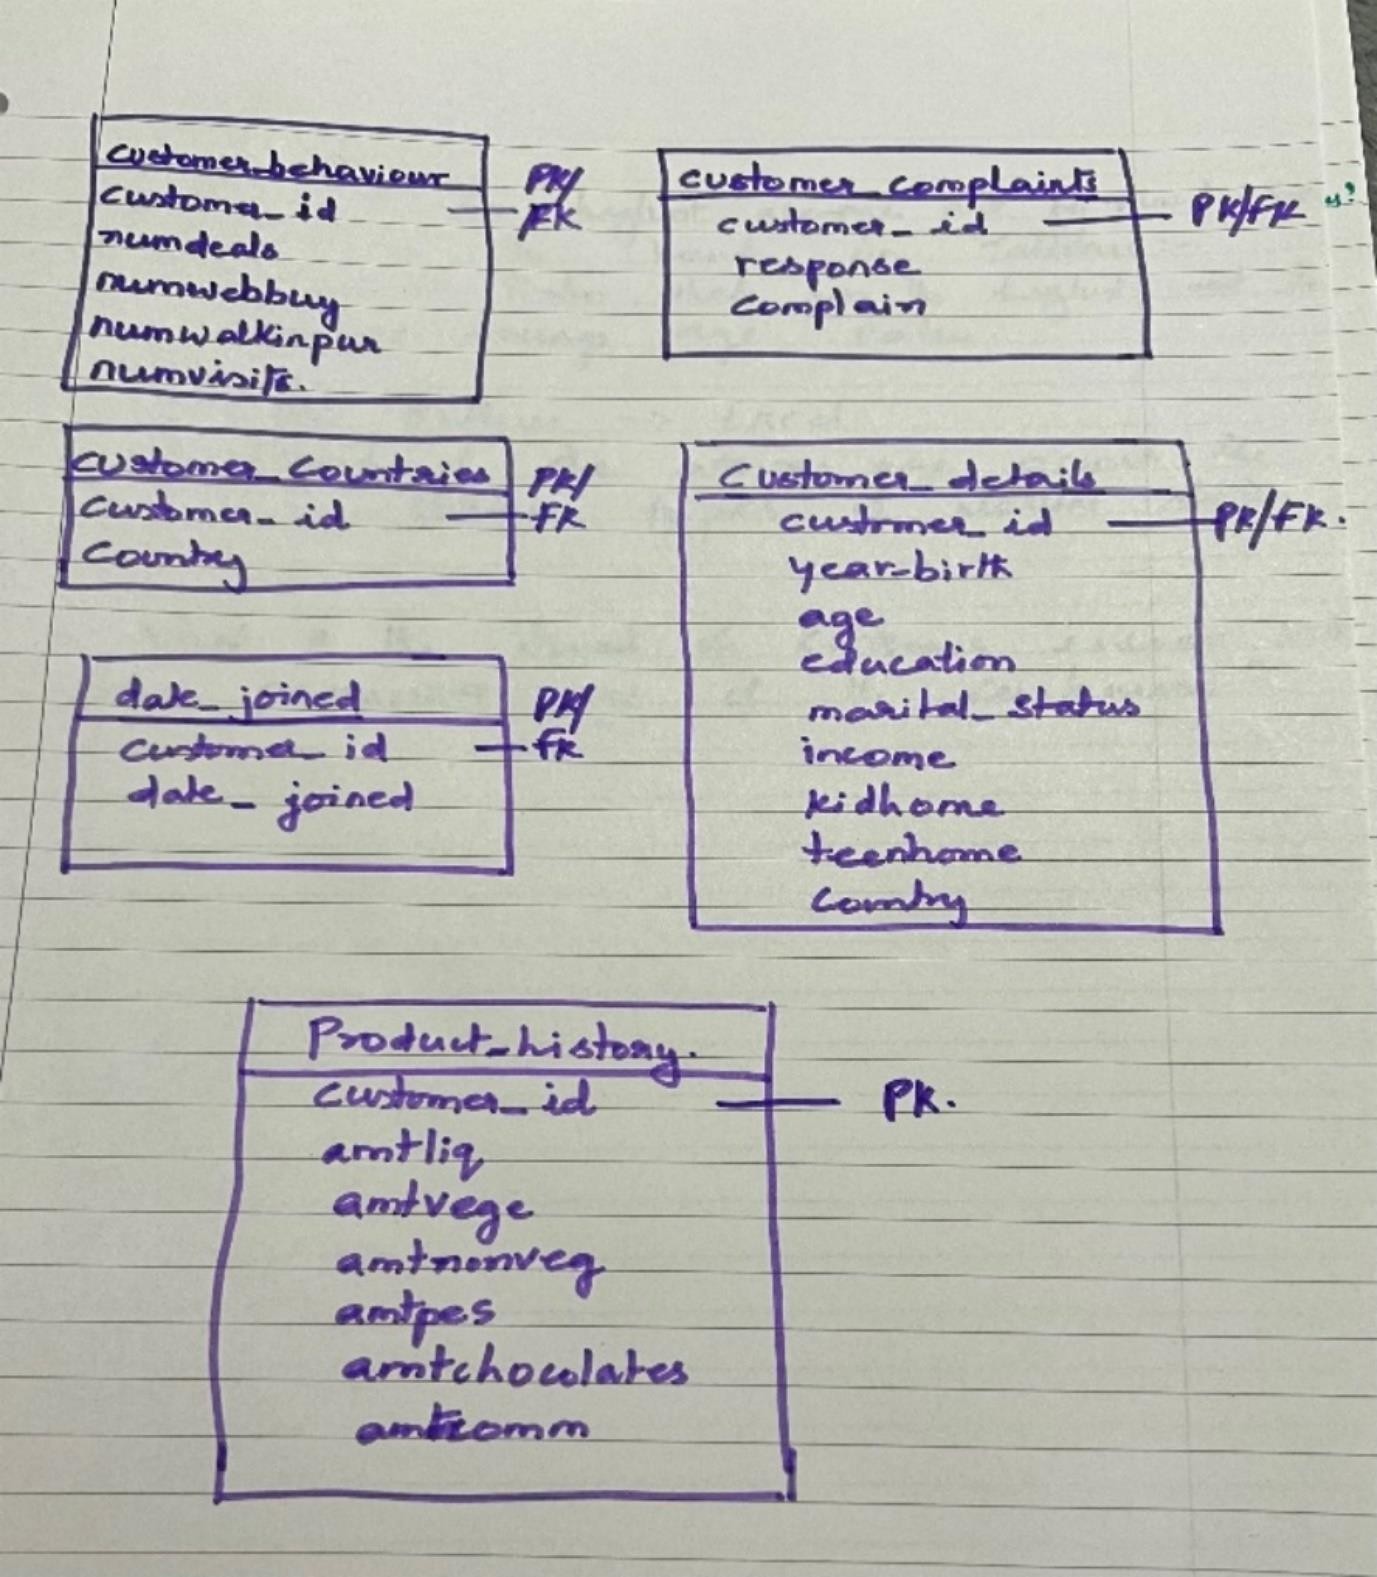 customer_behaviour
customer_id PK/FK
numdeals
numwebbuy
numwalkinpur
numvisits.
customer_complaints
customer_id PK/FK
response
complain
customer_countries
customer_id PK/FK
country
Customer_details
customer_id PK/FK.
year_birth
age
education
marital_status
income
kidhome
teenhome
country
date_joined
customer_id PK/FK
date_joined
Product_history.
customer_id PK.
amtliq
amtvege
amtnonveg
amtpes
amtchocolates
amtcomm